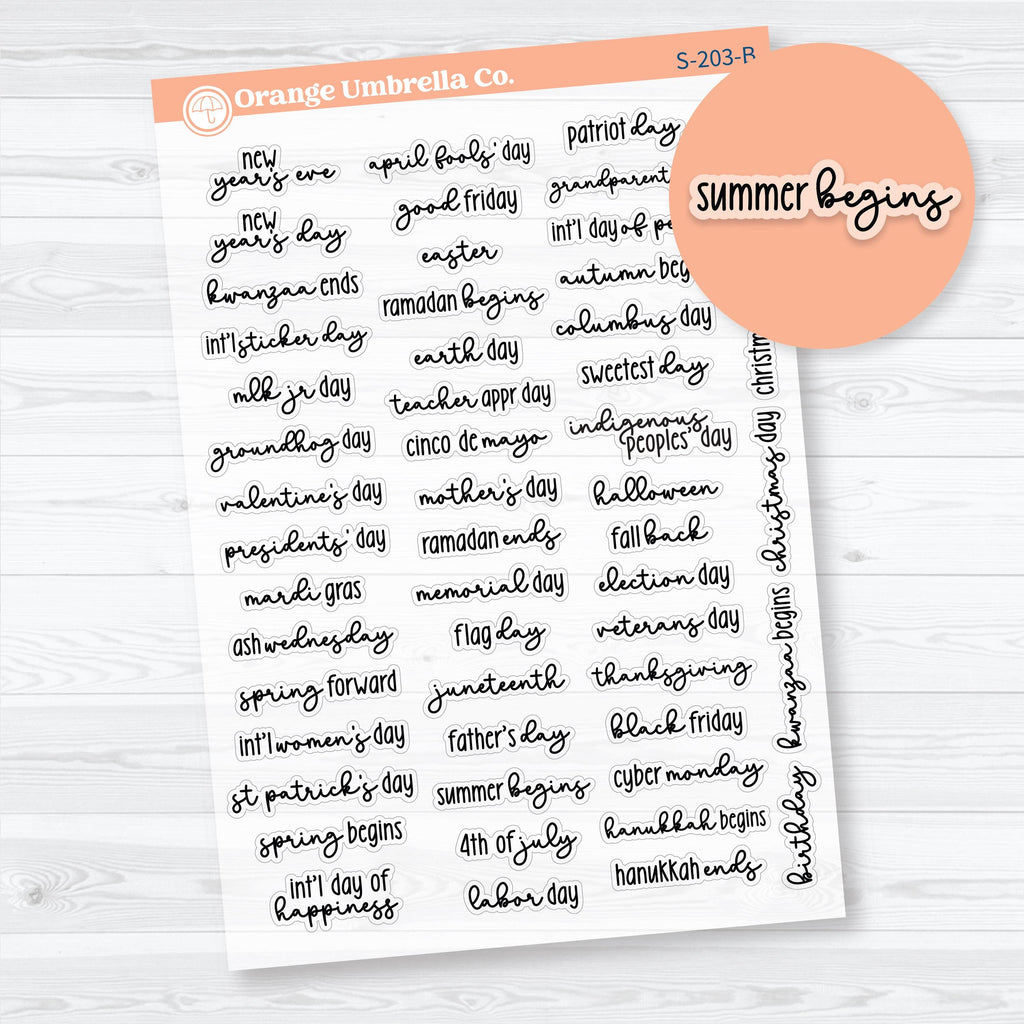 Orange Umbrella Co.
S-203-B
new
year's eve
new
year's day
kwanzaa ends
int'l sticker day
mlk jr day
groundhog day
valentine's day
presidents' day
mardi gras
ash wednesday
spring forward
int'l women's day
st patrick's day
spring begins
int'l day of
happiness
april fools' day
good friday
easter
ramadan begins
earth day
teacher appr day
cinco de mayo
mother's day
ramadan ends
memorial day
flag day
juneteenth
father's day
summer begins
4th of july
labor day
patriot day
grandparent
int'l day of
autumn
columbus day
sweetest day
indigenous
peoples' day
halloween
fall back
election day
veterans day
thanksgiving
black friday
cyber monday
hanukkah begins
hanukkah ends
christmas day
kwanzaa begins
birthday
summer begins